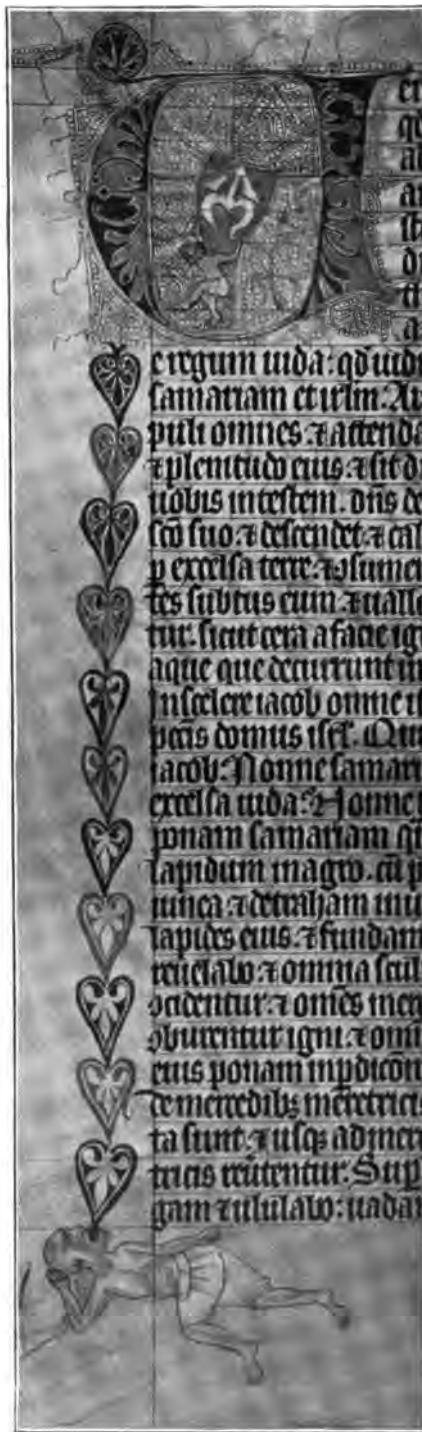 U er
qd
e regum iuda: qd̄ uidi
samariam et irlm̄. Au
puli omnes. ⁊ attenda
⁊ plenitudo eius. ⁊ sit d
uobis in testem. dn̄s de
sc̄o suo. ⁊ descendet. ⁊ cal
p excelsa terre. ⁊ ꝯsumen
tes subtus eum. ⁊ ualle
tur. sicut cera a facie ign
aque que decurrunt in
In scelere iacob omne is
pcc̄is domus isrl̄. Qui
iacob: Nonne samari
excelsa iuda? Nonne
ponam samariam q̄
lapidum in agro. cū p
uinea. ⁊ detraham in u
lapides eius. ⁊ fundam
reuelabo. ⁊ omnia scul
ꝯcidentur. ⁊ om̄es merc
ꝯburentur igni. ⁊ omī
eius ponam in ꝑdicōn
de mercedibꝫ meretricis
ta sunt. ⁊ usqꝫ ad merc
tricis reūtentur. Sup
gam ⁊ ululabo: uadam